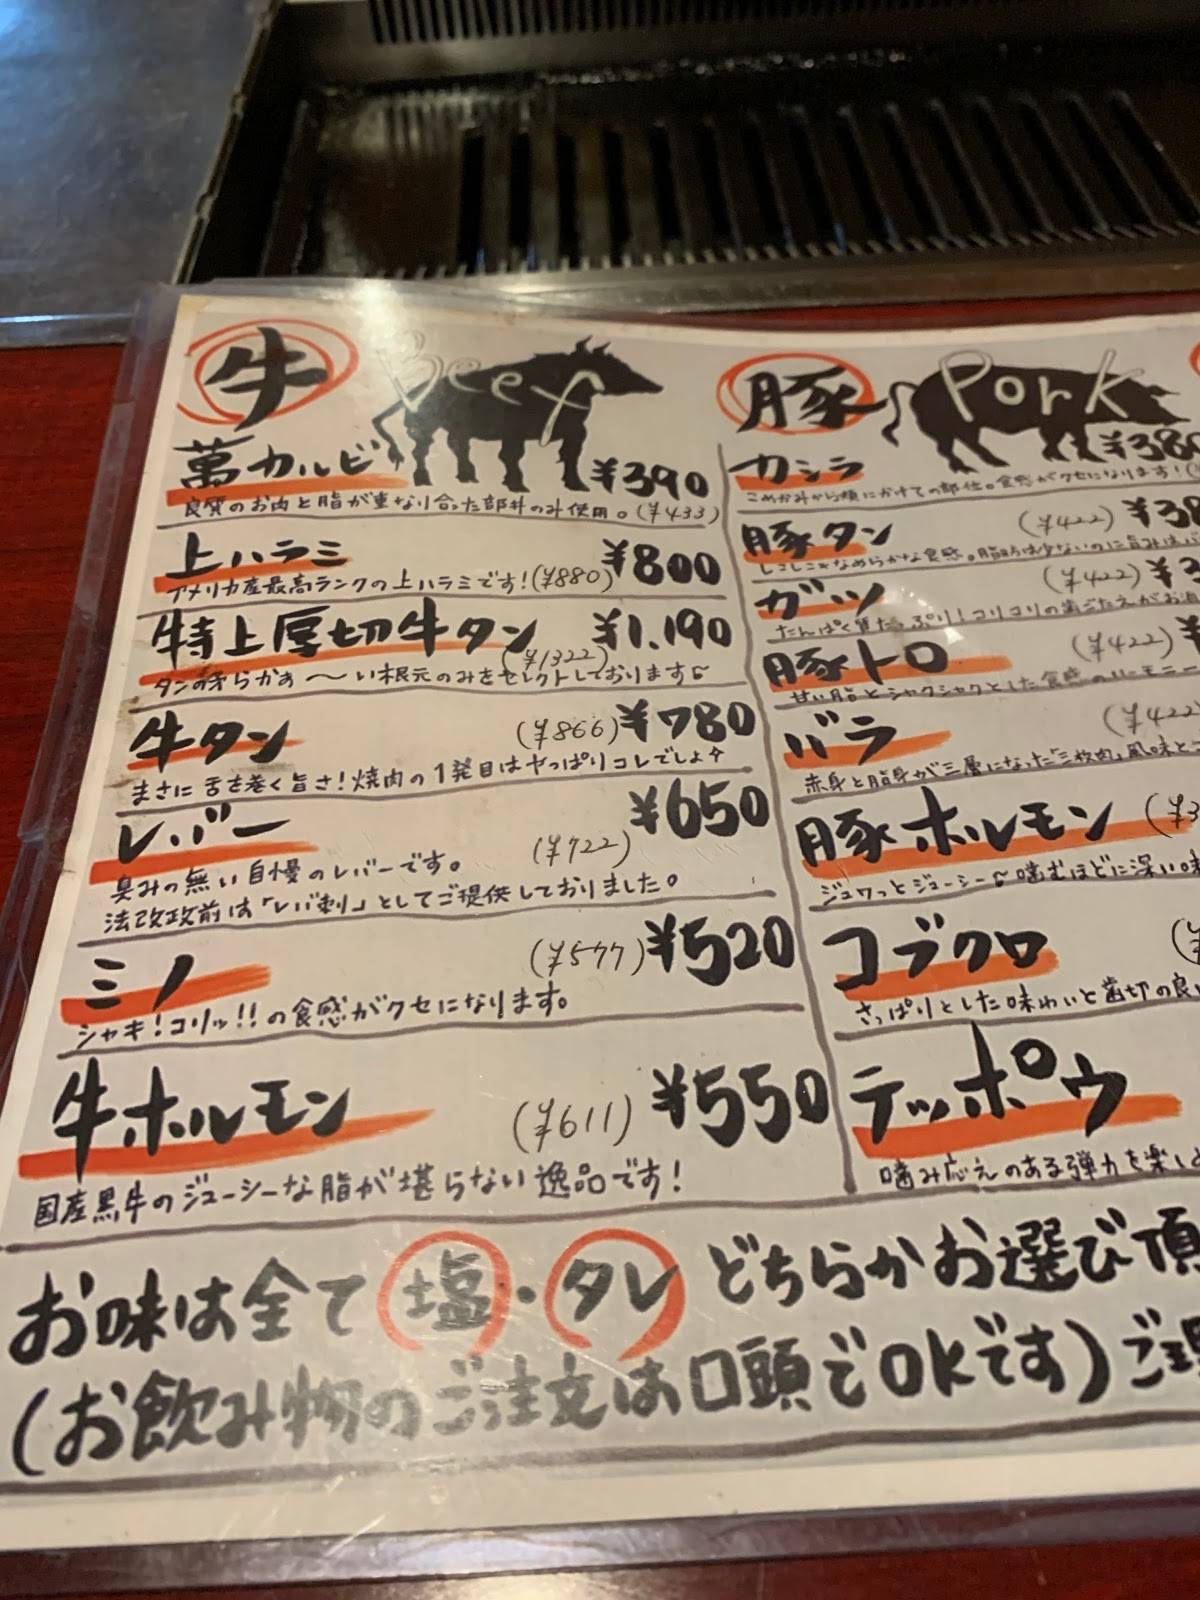 牛 Beef
萬カルビ ¥390
良質のお肉と脂が重なり合った部位のみ使用。(¥433)
上ハラミ ¥800
アメリカ産最高ランクの上ハラミです!(¥880)
特上厚切牛タン ¥1,190
(¥1322)
タンの柔らかぁ〜い根元のみをセレクトしております
牛タン (¥866) ¥780
まさに舌を巻く旨さ!焼肉の1発目はやっぱりコレでしょ
レバー ¥650
(¥722)
臭みの無い自慢のレバーです。
法改政前は「レバ刺」としてご提供しておりました。
ミノ (¥577) ¥520
シャキ!コリッ!!の食感がクセになります。
牛ホルモン (¥611) ¥550
国産黒牛のジューシーな脂が堪らない逸品です!
豚 Pork
カシラ ¥380
こめかみから頬にかけての部位。食感がクセになります!
豚タン (¥422) ¥38
しこしこ なめらかな食感。脂肪は少ないのに旨みは
ガツ (¥422)
たんぱく質たっぷり!コリコリの歯ごたえがお酒
豚トロ (¥422)
甘い脂とシャクシャクとした食感のハーモニー
バラ (¥422)
赤身と脂身が三層になった「三枚肉」風味と
豚ホルモン (¥3
ジュワっとジューシー 噛むほどに深い味
コブクロ (¥
さっぱりとした味わいと歯切の良い
テッポウ
噛み応えのある弾力を楽しめ
お味は全て 塩・タレ どちらかお選び頂
(お飲み物のご注文は口頭でOKです)ご理